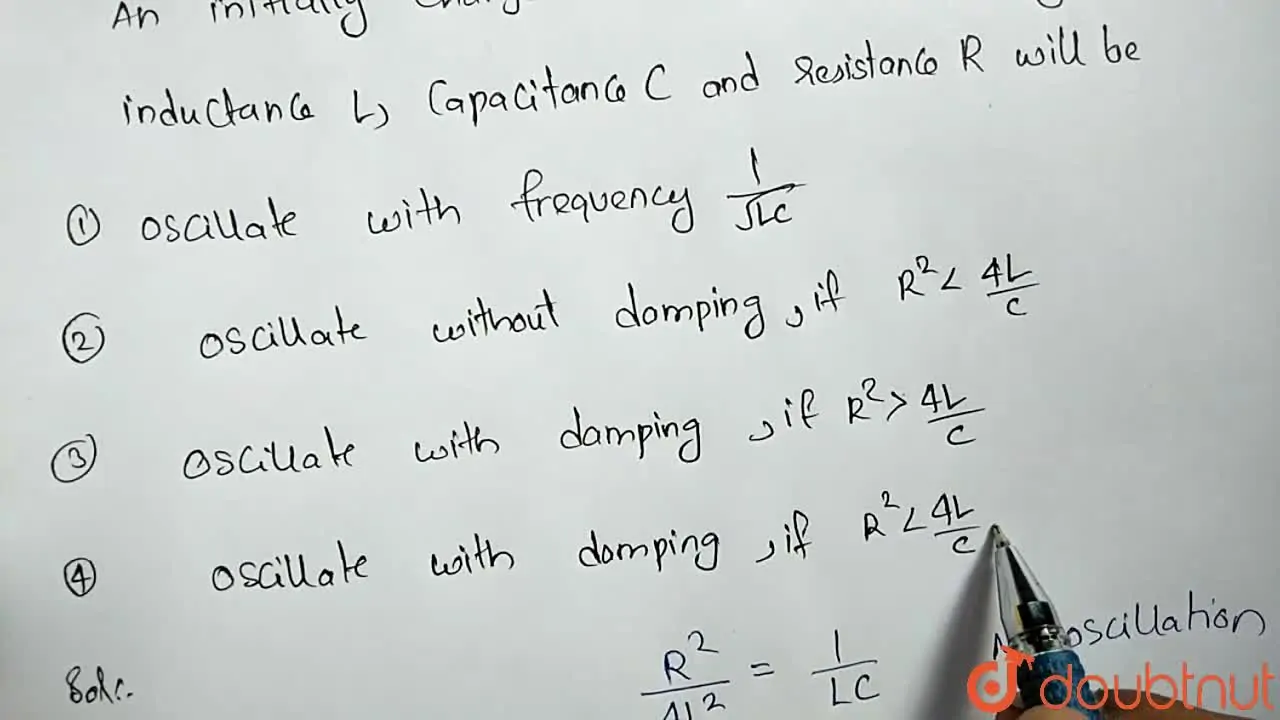 An initially
inductance L, Capacitance C and resistance R will be
① oscillate with frequency 1/√LC
② oscillate without damping, if R² < 4L/C
③ oscillate with damping, if R² > 4L/C
④ oscillate with damping, if R² < 4L/C
Soln. R²/4L² = 1/LC oscillation
doubtnut